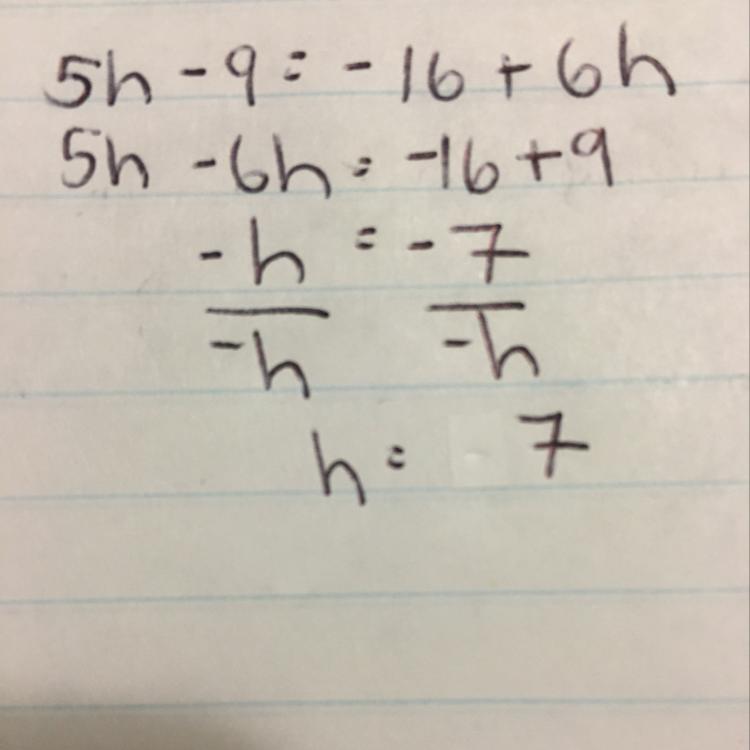 5h - 9 = - 16 + 6h
5h - 6h = -16 + 9
-h = -7
-h -h
h = 7